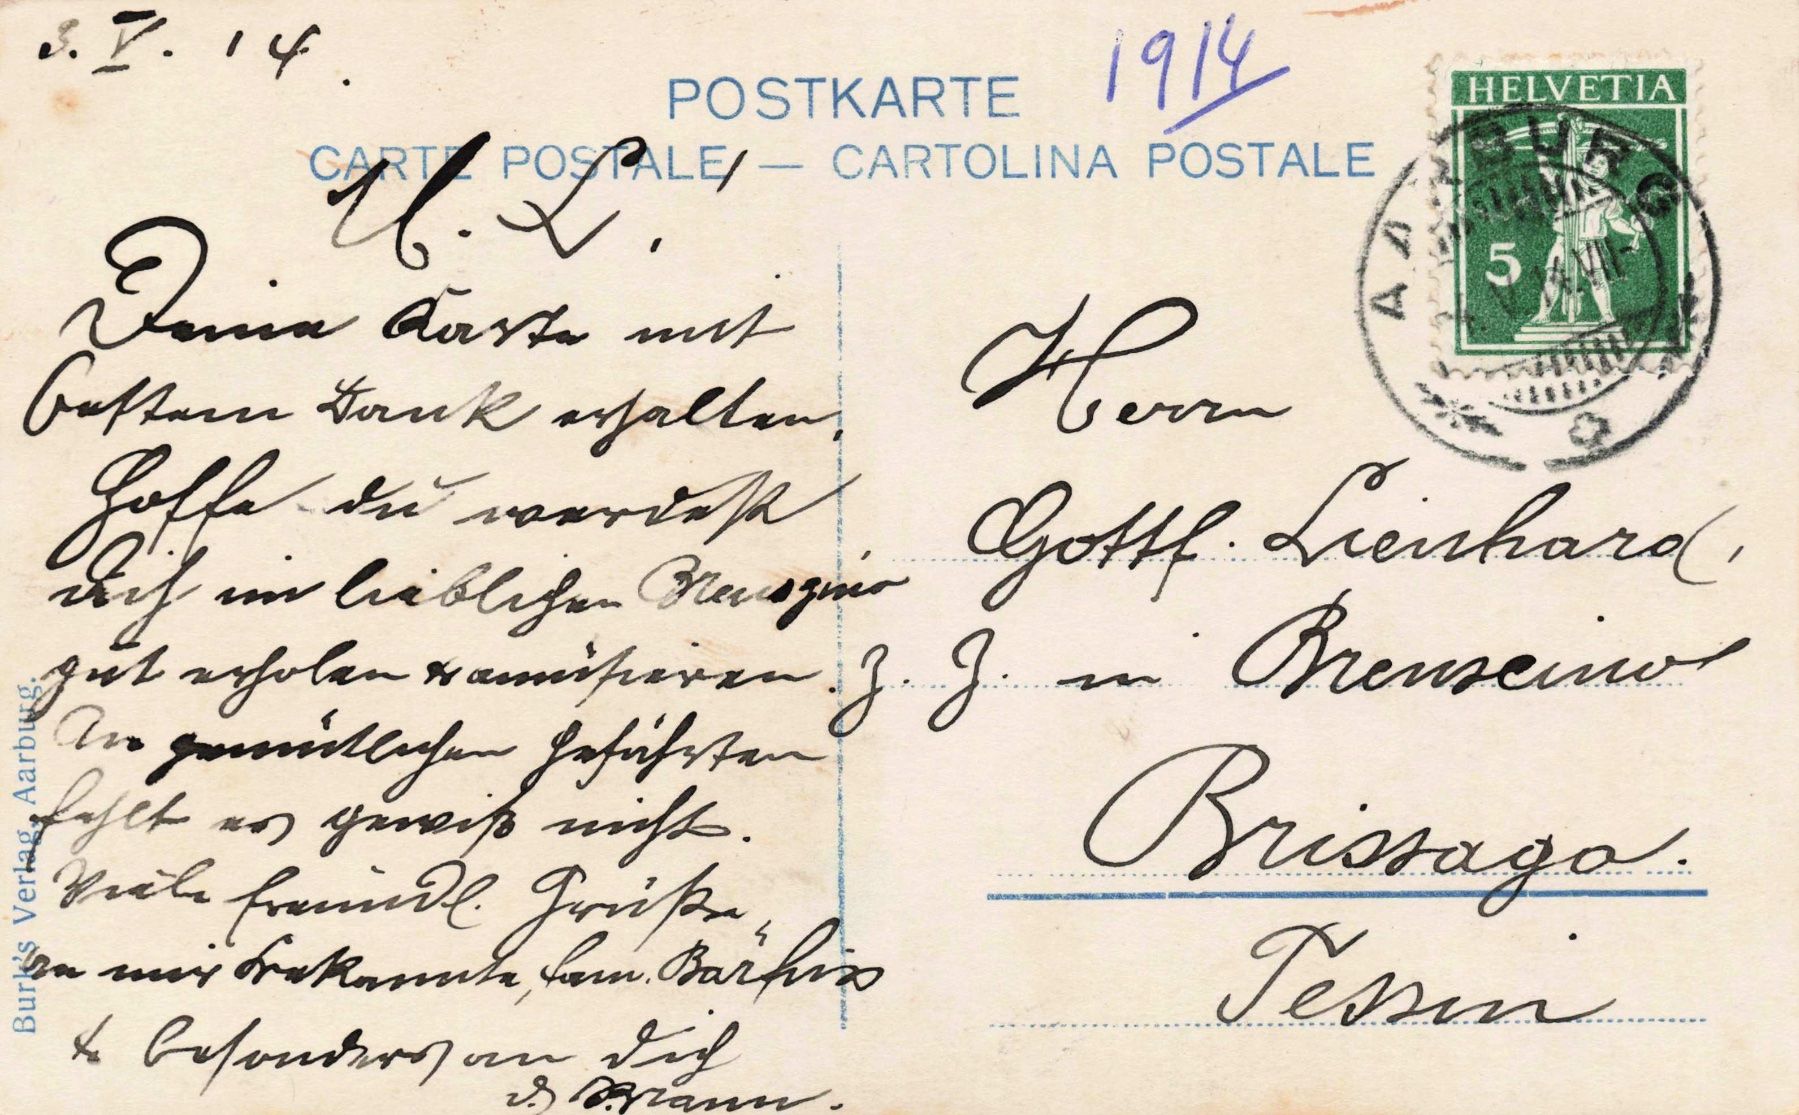 3. V. 14.
1914
POSTKARTE
CARTE POSTALE — CARTOLINA POSTALE
HELVETIA
5
AARBURG
M. L.!
Deine Karte mit
bestem Dank erhalten.
Hoffe du werdest
dich im lieblichen
gut erholen & amüsieren.
An gemütlichen Gefährten
fehlt es gewiß nicht.
Viele freundl. Grüße
an mir Bekannte, fam.
& besonders an dich
Herrn
Gottf. Lienhard,
z. Z. in Brenscino
Brissago.
Tessin
Burk's Verlag, Aarburg.